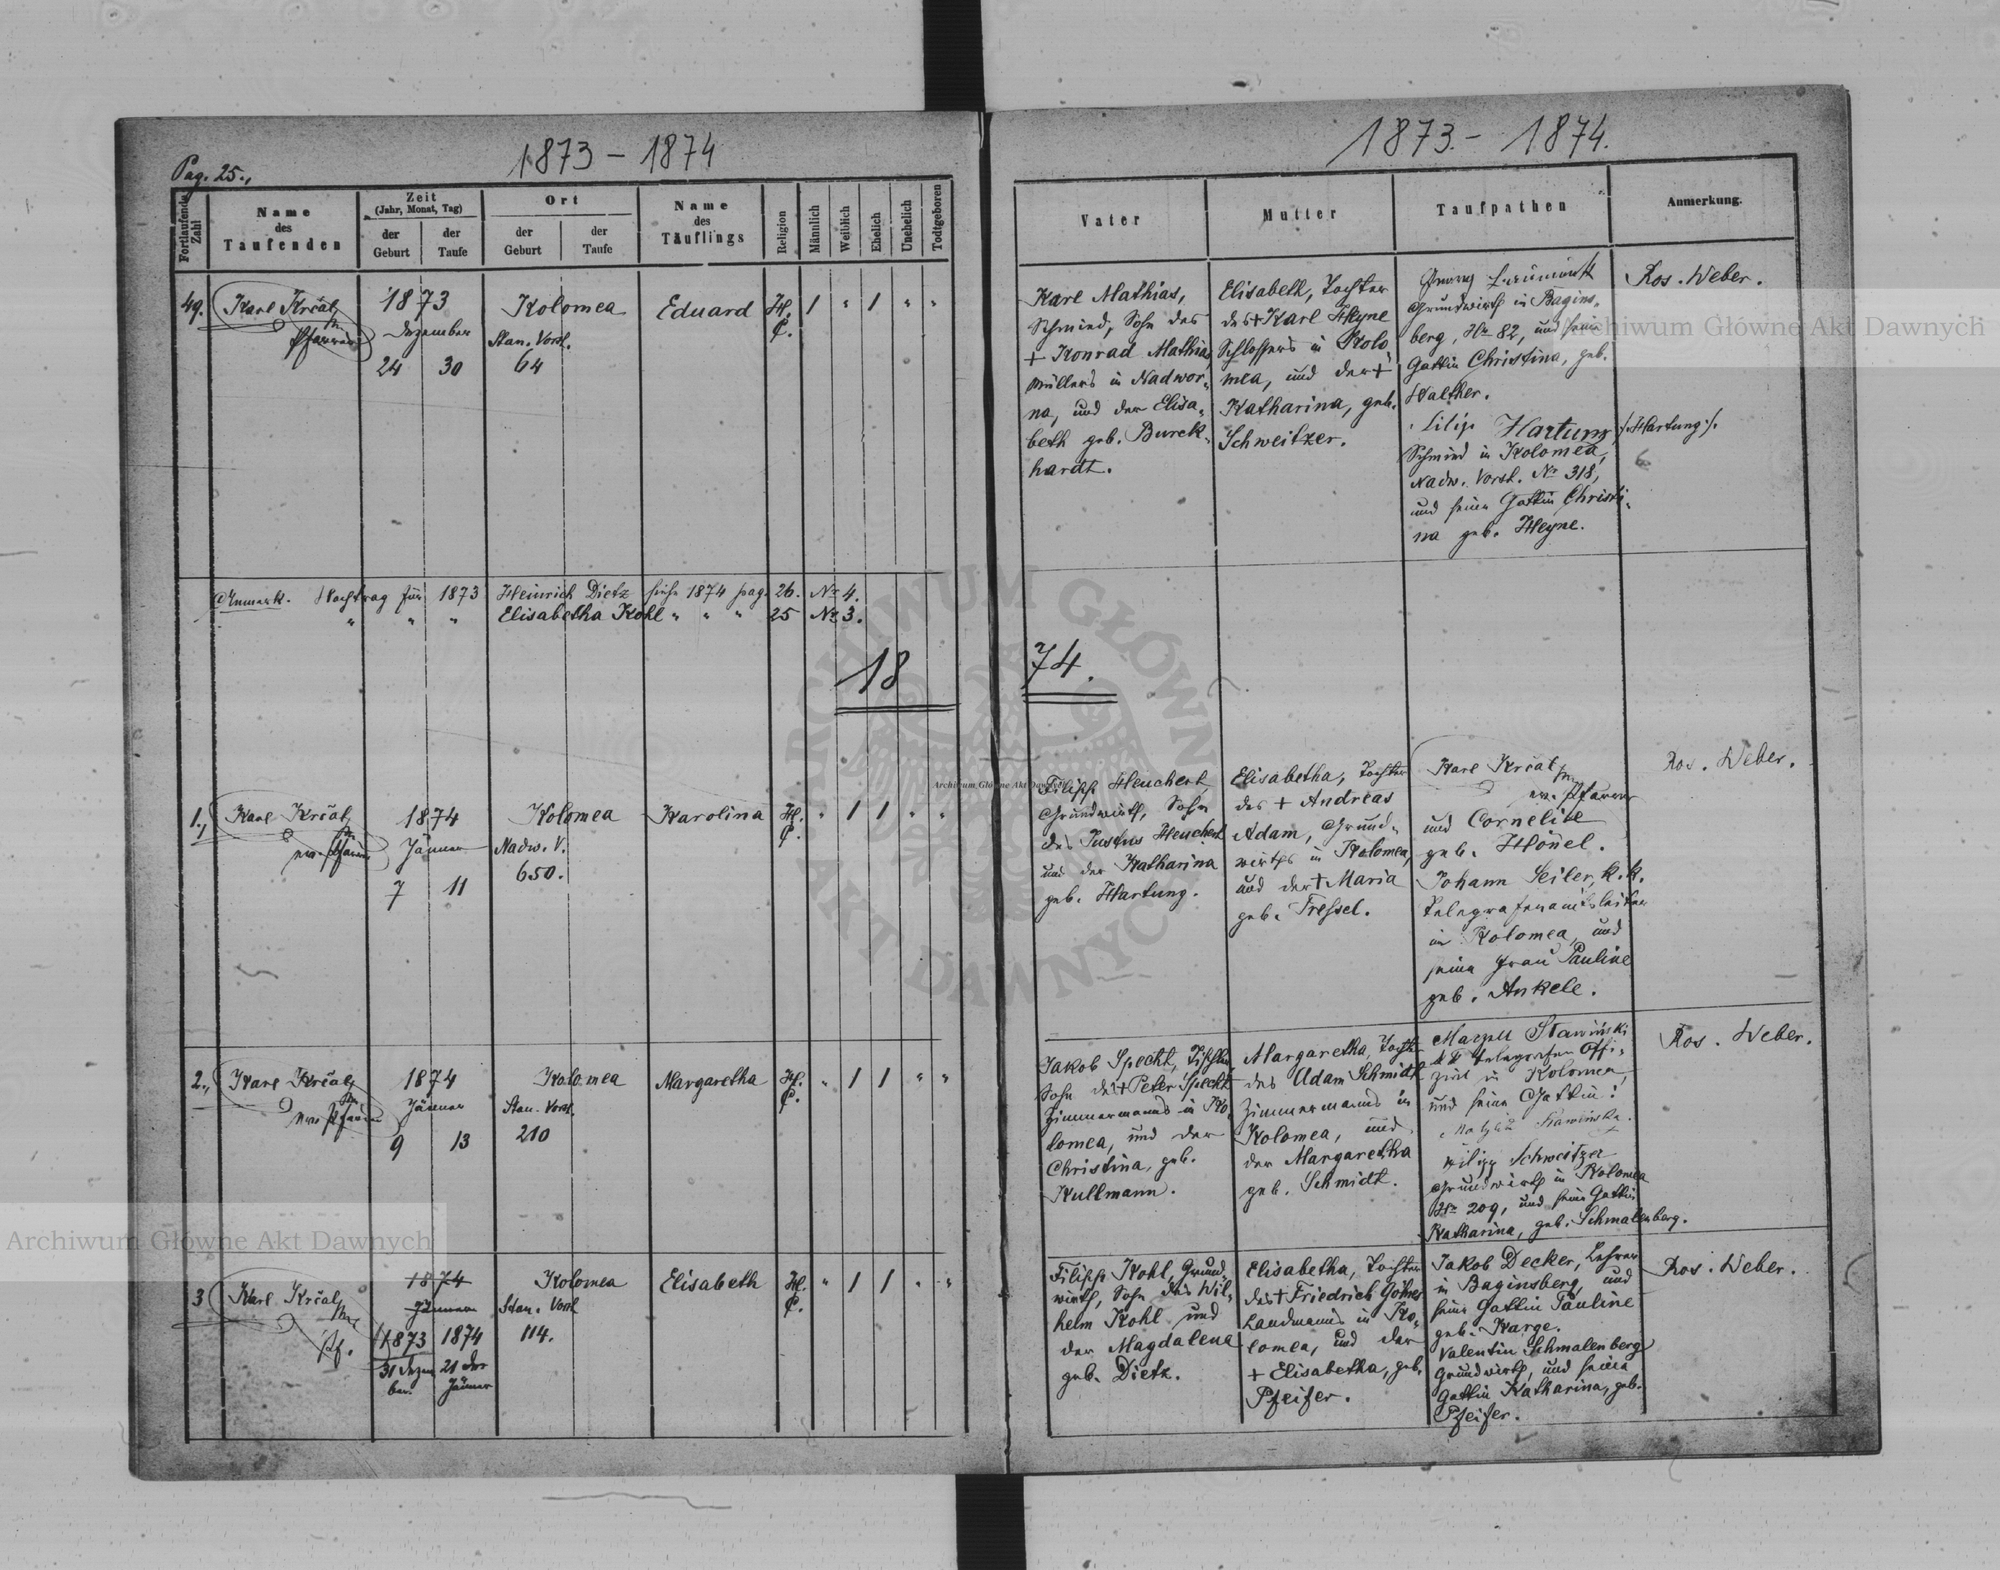 Pag. 25.,
1873 - 1874
Fortlaufende Zahl
Name
des
Taufenden
Zeit
(Jahr, Monat, Tag)
der
Geburt
der
Taufe
Ort
der
Geburt
der
Taufe
Name
des
Täuflings
Religion
Männlich
Weiblich
Ehelich
Unehelich
Todtgeboren
49.
Karl Krčal
Pfarrer
1873
Dezember
24 30
Kolomea
Stan. Vorst.
64
Eduard
H.
C.
1 " 1 " "
Anmerk. Nachtrag für 1873 Heinrich Dietz siehe 1874 pag. 26. Nr 4.
" " " Elisabetha Kohl " " " 25 Nr 3.
18
1.,
Karl Krčal
ev. Pfarrer
1874
Jänner
7 11
Kolomea
Nadw. V.
650.
Karolina
H.
C.
" 1 1 " "
2.,
Karl Krčal
ev. Pfarrer
1874
Jänner
9 13
Kolomea
Stan. Vorst.
210
Margaretha
H.
C.
" 1 1 " "
3
Karl Krčal
Pf.
1874
Jänner
1873 1874
31 Dezem 21 der
ber. Jänner
Kolomea
Stan. Vorst
114.
Elisabeth
H.
C.
" 1 1 " "
1873.- 1874.
Vater
Mutter
Taufpathen
Anmerkung.
Karl Mathias,
Schmied, Sohn des
+ Konrad Mathias,
Müllers in Nadwor-
na, und der Elisa-
beth geb. Burck-
hardt.
Elisabeth, Tochter
des + Karl Heyne
Schlossers in Kolo
mea, und der +
Katharina, geb.
Schweitzer.
Georg
Grundwirth in Bagins-
berg, Nr 82, und seine
Gattin Christina, geb.
Walther.
Filip Hartung /:Hartung:/.
Schmied in Kolomea,
Nadw. Vorst. Nr 318,
und seine Gattin Christi-
na geb. Heyne.
Ros. Weber.
74.
Filipp Heuchert,
Grundwirth, Sohn
des Justus Heuchert
und der Katharina
geb. Hartung.
Elisabetha, Tochter
des + Andreas
Adam, Grund-
wirths in Kolomea,
und der + Maria
geb. Tressel.
Karl Krčal
ev. Pfarrer
und Cornelie
geb. Hönel.
Johann Seiler, k. k.
Telegrafenamtsleiter
in Kolomea, und
seine Frau Pauline
geb. Ankele.
Ros. Weber.
Jakob Specht, Tischler,
Sohn des + Peter Specht
Zimmermanns in Ko
lomea, und der
Christina, geb.
Kullmann.
Margaretha, Tochter
des Adam Schmidt
Zimmermanns in
Kolomea, und
der Margaretha
geb. Schmidt.
Stawiński
kk Telegrafen Offi-
zial in Kolomea,
und seine Gattin:
Filipp Schweitzer
Grundwirth in Kolomea
Nr 209, und seine Gattin
Katharina, geb. Schmalenberg.
Ros. Weber.
Filipp Kohl, Grund
wirth, Sohn des Wil-
helm Kohl und
der Magdalena
geb. Dietz.
Elisabetha, Tochter
des + Friedrich
Landmanns in Ko-
lomea, und der
+ Elisabetha, geb.
Pfeifer.
Jakob Decker, Lehrer
in Baginsberg, und
seine Gattin Pauline
geb. Karge.
Valentin Schmalenberg
Grundwirth, und seine
Gattin Katharina, geb.
Pfeifer.
Ros. Weber.
Archiwum Główne Akt Dawnych
Archiwum Główne Akt Dawnych
Archiwum Główne Akt Dawnych
ARCHIWUM GŁÓWNE AKT DAWNYCH